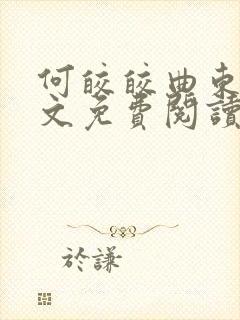 何皎皎曲東
文免費閱讀
於謙